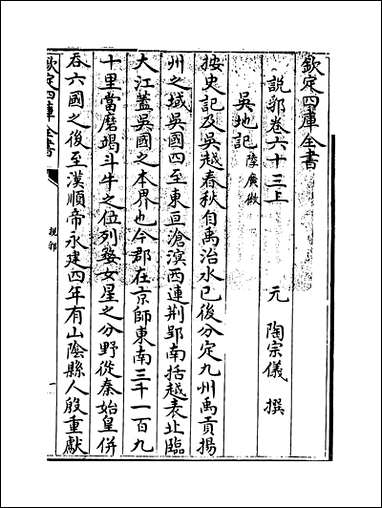 欽定四庫全書
說郛卷六十三上
元 陶宗儀 撰
吳地記 陸廣微
按史記及吳越春秋自禹治水已後分定九州禹貢揚
州之域吳國四至東亘滄溟西連荆郢南括越表北臨
大江蓋吳國之本界也今郡在京師東南三千一百九
十里當磨竭斗牛之位列婺女星之分野從秦始皇併
吞六國之後至漢順帝永建四年有山陰縣人殷重獻
欽定四庫全書
說郛
一